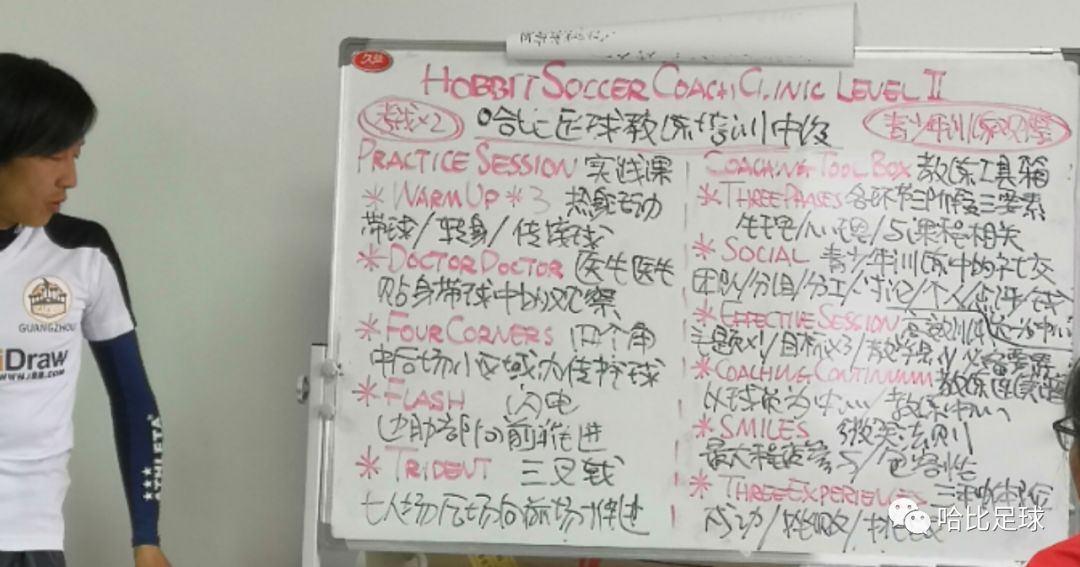 久益
HOBBIT SOCCER COACH CLINIC LEVEL II
考试×2
哈比足球教练培训中级
青少年训练观摩
PRACTICE SESSION 实践课
* WARM UP * 3 热身活动
带球/转身/传接球
* DOCTOR DOCTOR 医生医生
贴身带球中的观察
* FOUR CORNERS 四个角
中后场小区域的传控球
* FLASH 闪电
边肋部向前推进
* TRIDENT 三叉戟
七人场后场向前场推进
COACHING TOOL BOX 教练工具箱
* THREE PHASES 各环节三阶段三要素
生理/心理/与课程相关
* SOCIAL 青少年训练中的社交
团队/分组/分工/讨论/个人/点评
* EFFECTIVE SESSION 高效训练
主题×1/目标×3/教学点
* COACHING CONTINUUM 教练
以球员为中心/教练中心
* SMILES 微笑法则
最大程度参与/包容性
* THREE EXPERIENCES 三种体验
成功/挑战
GUANGZHOU
iDraw
ATHLETA
哈比足球